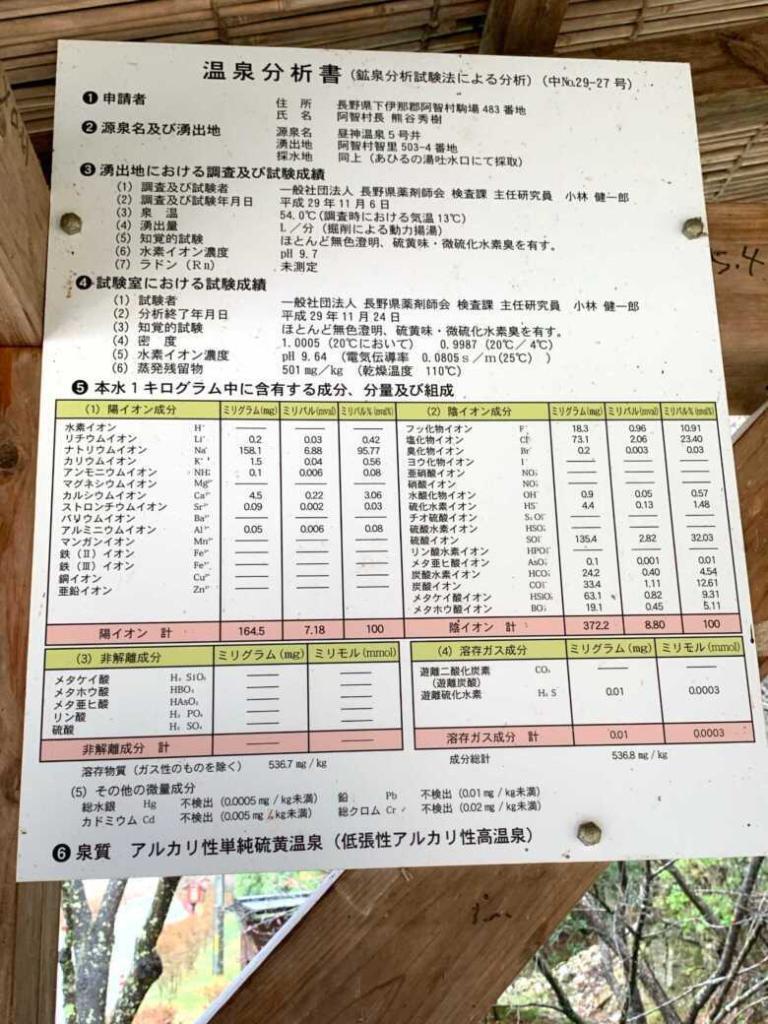 温泉分析書（鉱泉分析試験法による分析）（中No.29-27 号）
❶ 申請者 住 所 長野県下伊那郡阿智村駒場 483 番地
氏 名 阿智村長 熊谷秀樹
❷ 源泉名及び湧出地 源泉名 昼神温泉５号井
湧出地 阿智村智里 503-4 番地
採水地 同上（あひるの湯吐水口にて採取）
❸ 湧出地における調査及び試験成績
(1) 調査及び試験者 一般社団法人 長野県薬剤師会 検査課 主任研究員 小林 健一郎
(2) 調査及び試験年月日 平成 29 年 11 月 6 日
(3) 泉 温 54.0℃(調査時における気温 13℃)
(4) 湧出量 L／分（掘削による動力揚湯）
(5) 知覚的試験 ほとんど無色澄明、硫黄味・微硫化水素臭を有す。
(6) 水素イオン濃度 pH 9.7
(7) ラドン（Rn） 未測定
❹ 試験室における試験成績
(1) 試験者 一般社団法人 長野県薬剤師会 検査課 主任研究員 小林 健一郎
(2) 分析終了年月日 平成 29 年 11 月 24 日
(3) 知覚的試験 ほとんど無色澄明、硫黄味・微硫化水素臭を有す。
(4) 密 度 1.0005 (20℃において) 0.9987 (20℃／4℃)
(5) 水素イオン濃度 pH 9.64 （電気伝導率 0.0805ｓ／m(25℃) ）
(6) 蒸発残留物 501 mg／kg （乾燥温度 110℃）
❺ 本水１キログラム中に含有する成分、分量及び組成
(1) 陽イオン成分 ミリグラム(mg) ミリバル(mval) ミリバル%(mval%)
水素イオン H⁺ ― ― ―
リチウムイオン Li⁺ 0.2 0.03 0.42
ナトリウムイオン Na⁺ 158.1 6.88 95.77
カリウムイオン K⁺ 1.5 0.04 0.56
アンモニウムイオン NH₄⁺ 0.1 0.006 0.08
マグネシウムイオン Mg²⁺ ― ― ―
カルシウムイオン Ca²⁺ 4.5 0.22 3.06
ストロンチウムイオン Sr²⁺ 0.09 0.002 0.03
バリウムイオン Ba²⁺ ― ― ―
アルミニウムイオン Al³⁺ 0.05 0.006 0.08
マンガンイオン Mn²⁺ ― ― ―
鉄（Ⅱ）イオン Fe²⁺ ― ― ―
鉄（Ⅲ）イオン Fe³⁺ ― ― ―
銅イオン Cu²⁺ ― ― ―
亜鉛イオン Zn²⁺ ― ― ―
陽イオン 計 164.5 7.18 100
(2) 陰イオン成分 ミリグラム(mg) ミリバル(mval) ミリバル%(mval%)
フッ化物イオン F⁻ 18.3 0.96 10.91
塩化物イオン Cl⁻ 73.1 2.06 23.40
臭化物イオン Br⁻ 0.2 0.003 0.03
ヨウ化物イオン I⁻ ― ― ―
亜硝酸イオン NO₂⁻ ― ― ―
硝酸イオン NO₃⁻ ― ― ―
水酸化物イオン OH⁻ 0.9 0.05 0.57
硫化水素イオン HS⁻ 4.4 0.13 1.48
チオ硫酸イオン S₂O₃²⁻ ― ― ―
硫酸水素イオン HSO₄⁻ ― ― ―
硫酸イオン SO₄²⁻ 135.4 2.82 32.03
リン酸水素イオン HPO₄²⁻ ― ― ―
メタ亜ヒ酸イオン AsO₂⁻ 0.1 0.001 0.01
炭酸水素イオン HCO₃⁻ 24.2 0.40 4.54
炭酸イオン CO₃²⁻ 33.4 1.11 12.61
メタケイ酸イオン HSiO₃⁻ 63.1 0.82 9.31
メタホウ酸イオン BO₂⁻ 19.1 0.45 5.11
陰イオン 計 372.2 8.80 100
(3) 非解離成分 ミリグラム(mg) ミリモル(mmol)
メタケイ酸 H₂ SiO₃ ― ―
メタホウ酸 HBO₂ ― ―
メタ亜ヒ酸 HAsO₂ ― ―
リン酸 H₃ PO₄ ― ―
硫酸 H₂ SO₄ ― ―
非解離成分 計 ― ―
(4) 溶存ガス成分 ミリグラム(mg) ミリモル(mmol)
遊離二酸化炭素 CO₂ ― ―
（遊離炭酸）
遊離硫化水素 H₂ S 0.01 0.0003
溶存ガス成分 計 0.01 0.0003
溶存物質（ガス性のものを除く） 536.7 mg／kg 成分総計 536.8 mg／kg
(5) その他の微量成分
総水銀 Hg 不検出（0.0005 mg／kg未満） 鉛 Pb 不検出（0.01 mg／kg未満）
カドミウム Cd 不検出（0.005 mg／kg未満） 総クロム Cr 不検出（0.02 mg／kg未満）
❻ 泉質 アルカリ性単純硫黄温泉（低張性アルカリ性高温泉）
5.4